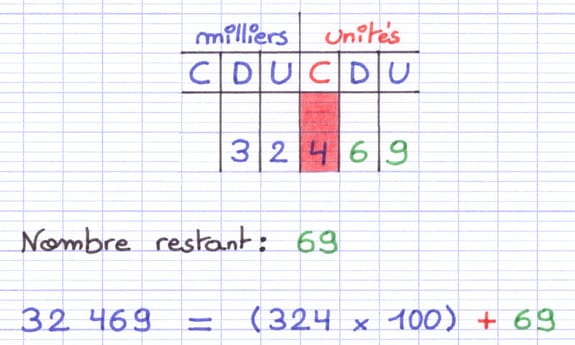 milliers unités
C D U C D U
3 2 4 6 9
Nombre restant: 69
32 469 = (324 x 100) + 69